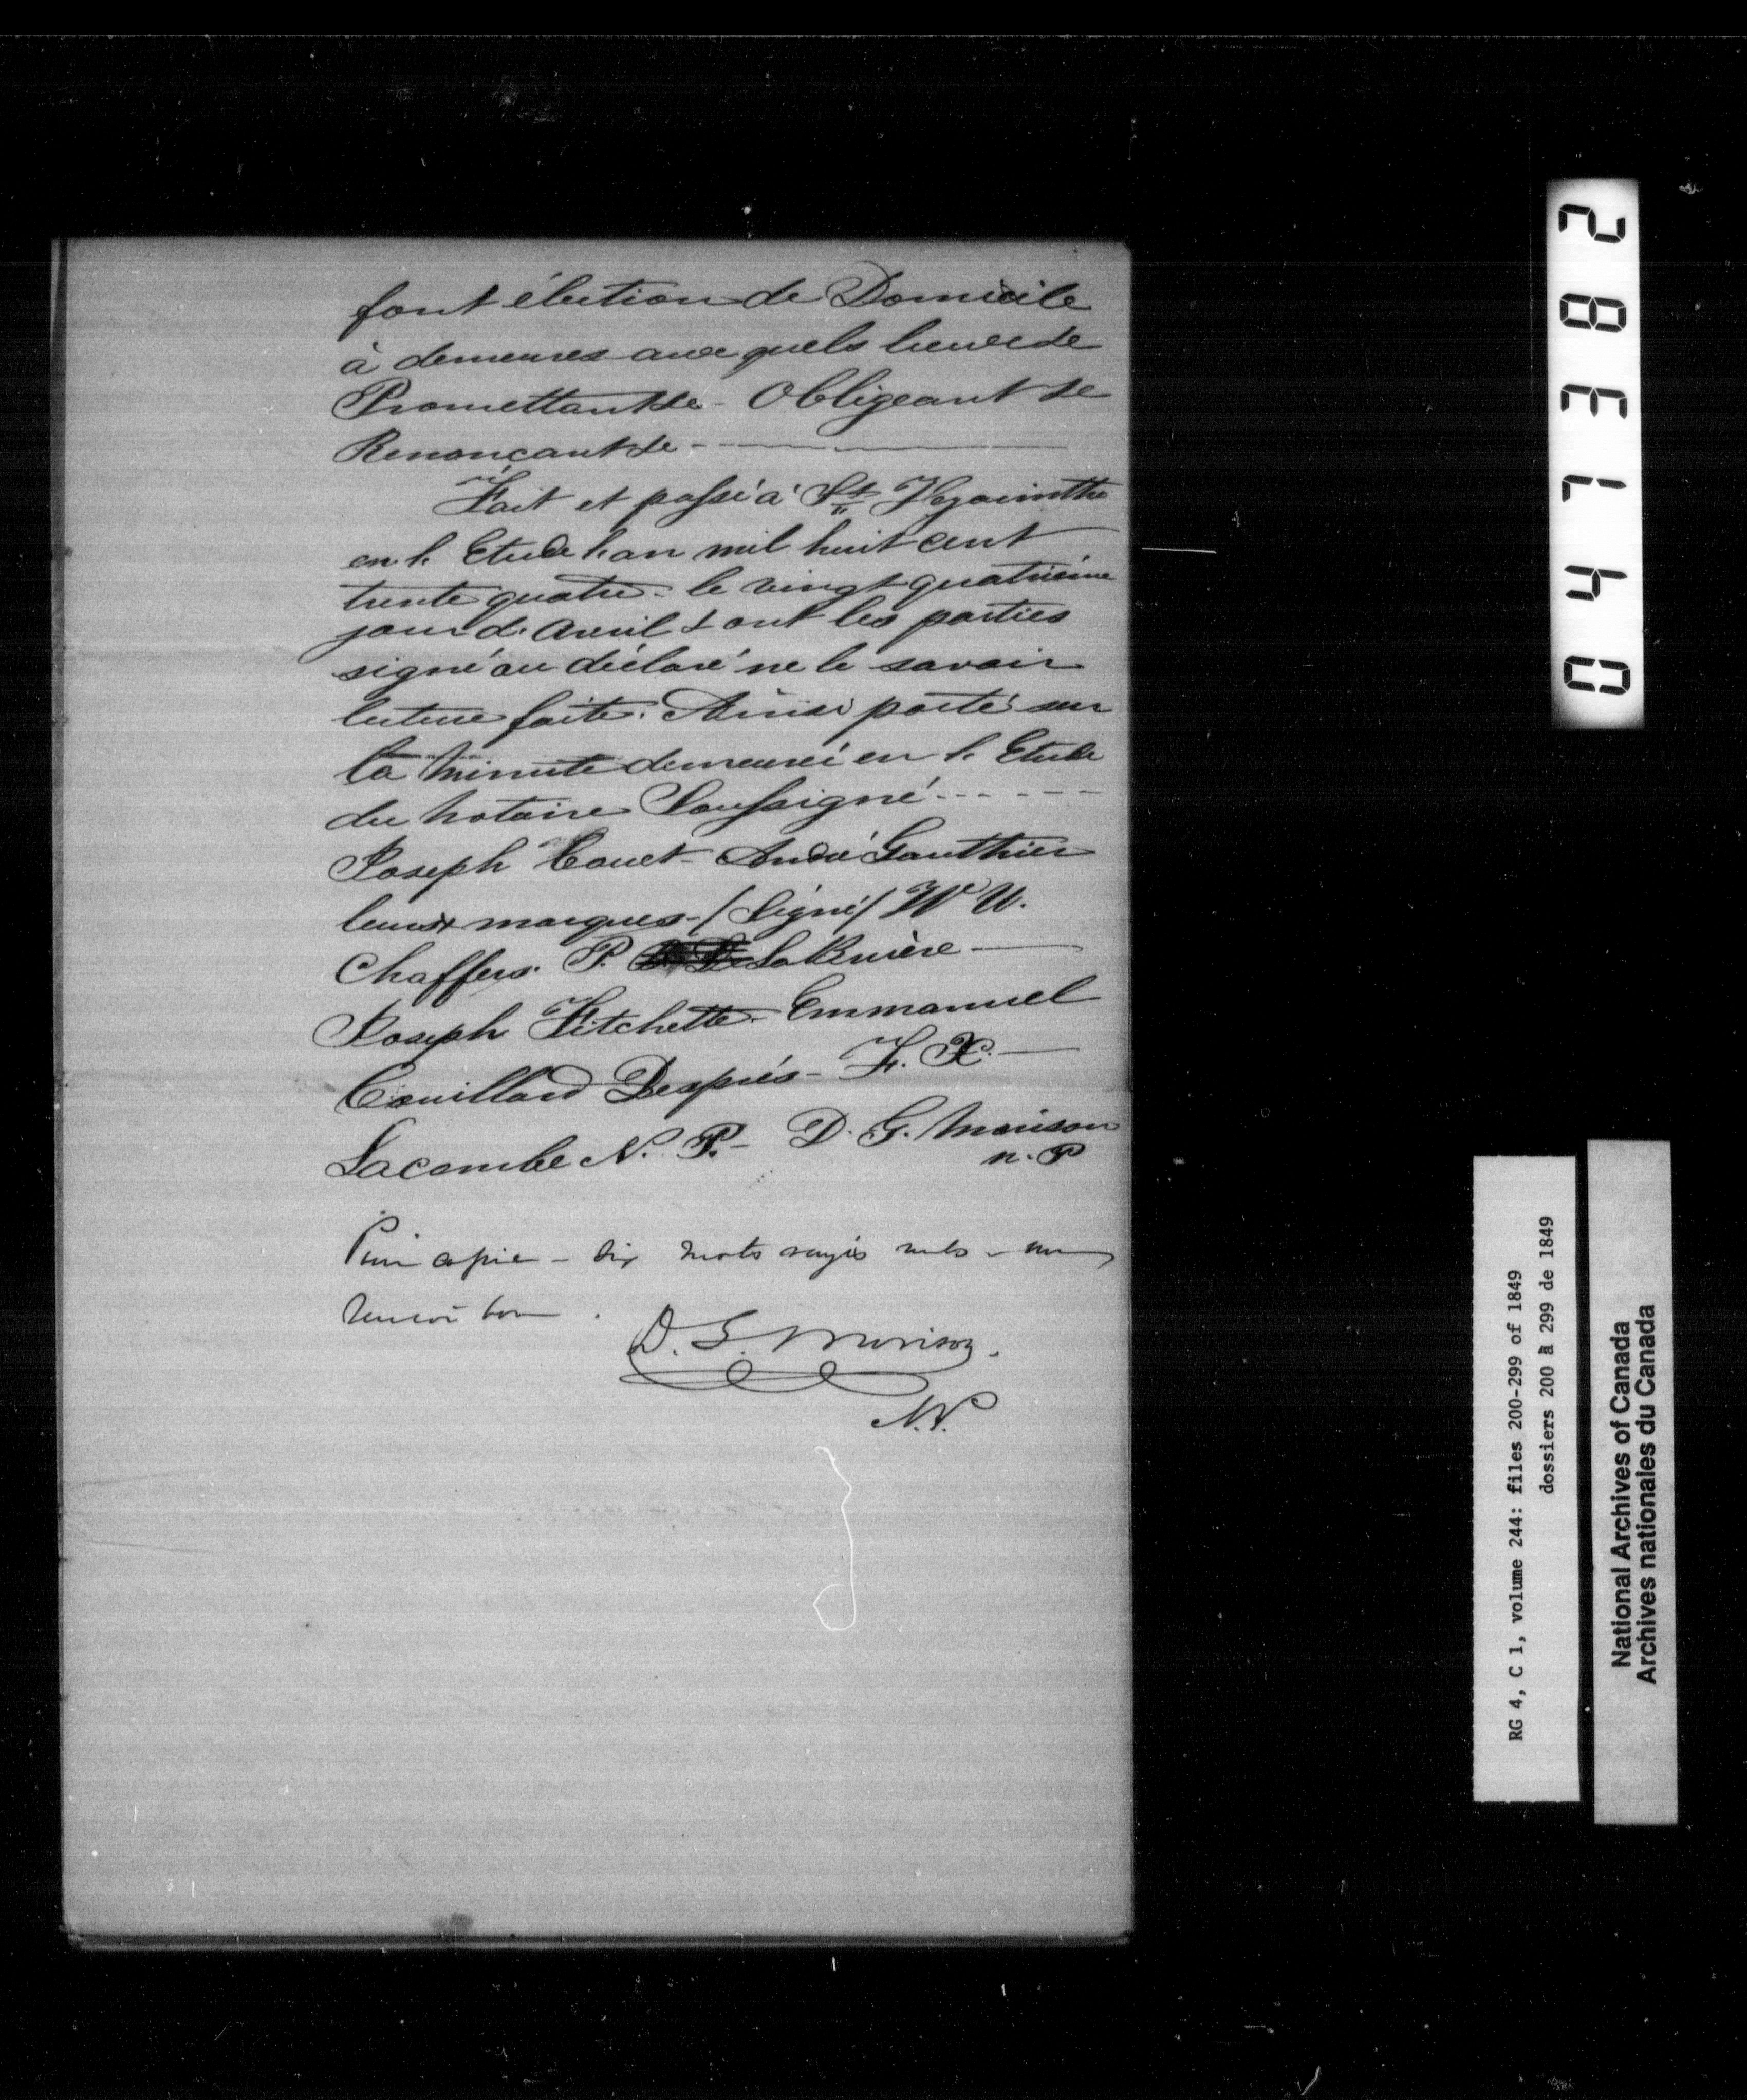 font élection de Domicile
à demeures aux quels lieux &c
Promettant &c - Obligeant &c
Renonçant &c -
Fait et passé à St Hyacinthe
en l. Etude l'an mil huit cent
trente quatre - le vingt quatrième
jour d'avril & ont les parties
signé ou déclaré ne le savoir
lecture faite. Ainsi porté sur
la Minute demeurée en l. Etude
du notaire Soussigné
Joseph Couet - André Gauthier
leurs x marques - / Signé / Wm U.
Chaffers. P. de LaBruère
Joseph Fitchette - Emmanuel
Couillard Després - F. X.
Lacombe N. P. - D. G. Morison
n. P
Pour copie - dix mots rayés nuls - un
renvoi bon.
D. G. Morison.
N.P.
047382
RG 4, C 1, volume 244: files 200-299 of 1849
dossiers 200 à 299 de 1849
National Archives of Canada
Archives nationales du Canada